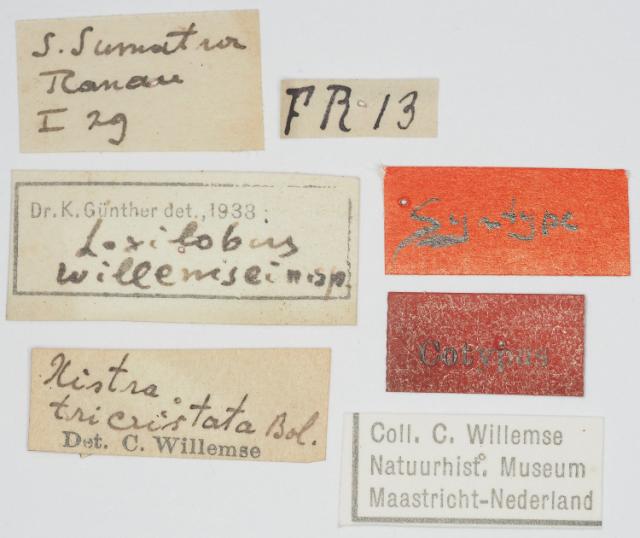 S. Sumatra
Ranau
I 29
FR 13
Dr. K. Günther det., 1938 :
Loxilobus
willemsei n.sp.
Syntype
Cotypus
Histra
tricristata Bol.
Det. C. Willemse
Coll. C. Willemse
Natuurhist. Museum
Maastricht-Nederland